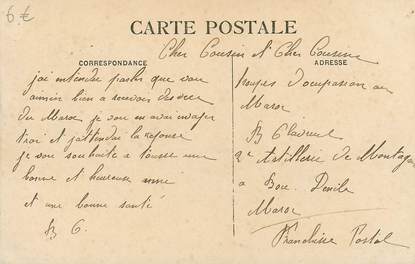 6 €
CARTE POSTALE
CORRESPONDANCE
ADRESSE
Cher Cousin et Cher Cousine
jai entendue parler que vou
aimier bien a recevoir des
du Maroc je vou en avai
troi et jattendai la reponse
je vou souhaite a tousse une
bonne et heureuse anné
et une bonne santé
B G.
troupes d'occupassion au
Maroc
2e Artillerie de Montagne
a Bou Denile
Maroc
Franchise Postal